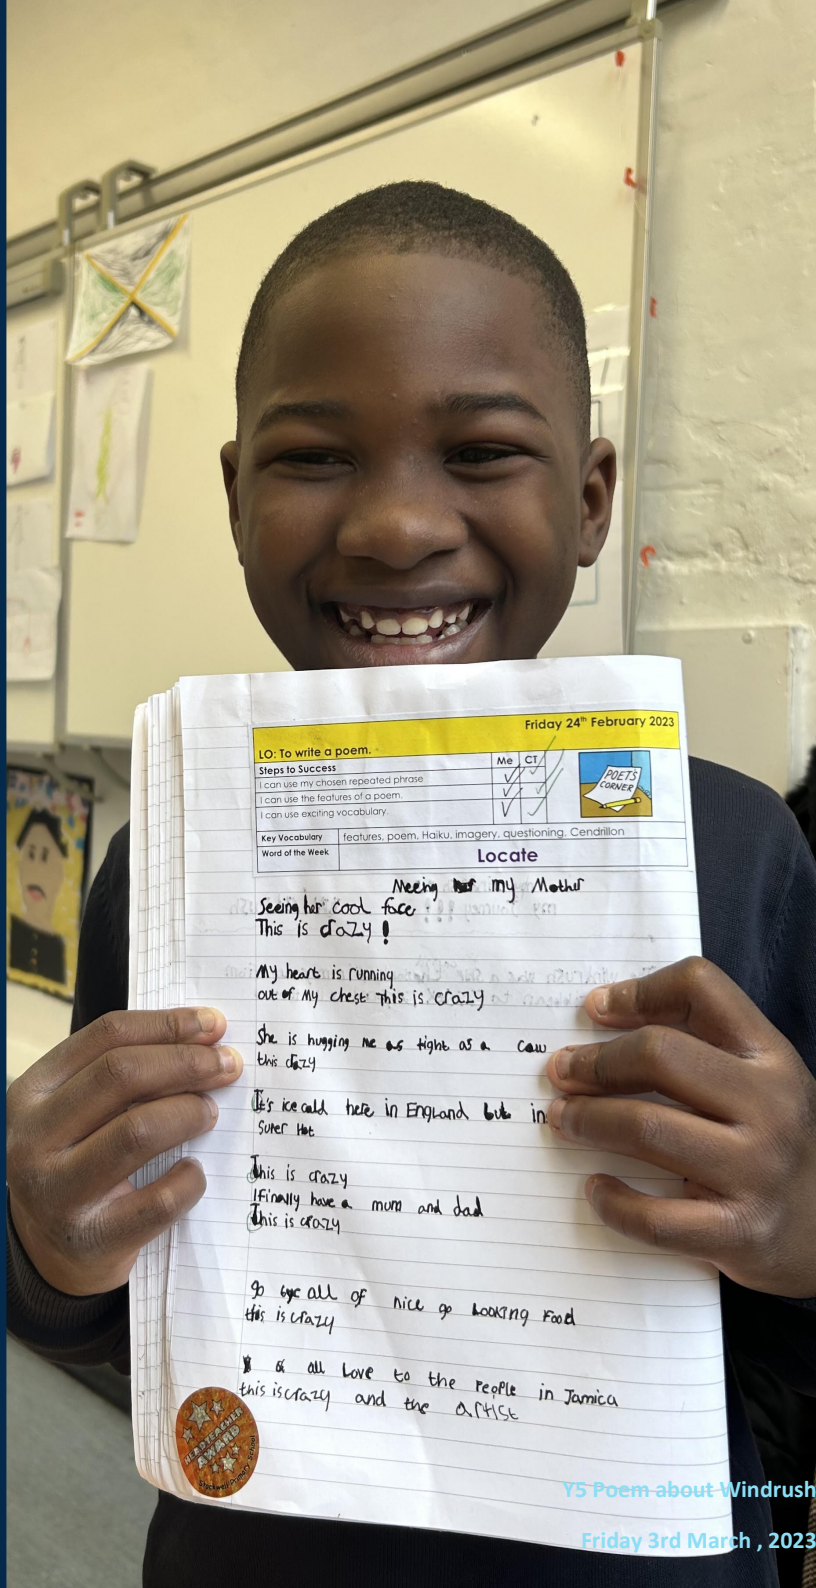 Friday 24th February 2023
LO: To write a poem.
Steps to Success
Me
CT
I can use my chosen repeated phrase
I can use the features of a poem.
I can use exciting vocabulary.
POETS
CORNER
Key Vocabulary
features, poem, Haiku, imagery, questioning, Cendrillon
Word of the Week
Locate
Meeing my Mother
Seeing her cool face
This is crazy!
My heart is running
out of my chest This is crazy
She is hugging me as tight as a cow
this crazy
It's ice cald here in England but in
Super Hot
This is crazy
I finally have a mum and dad
This is crazy
go all of nice go looking Food
this is crazy
all Love to the People in Jamica
this is crazy and the artist
HEADTEACHER
AWARD
Stockwell Primary School
Y5 Poem about Windrush
Friday 3rd March , 2023